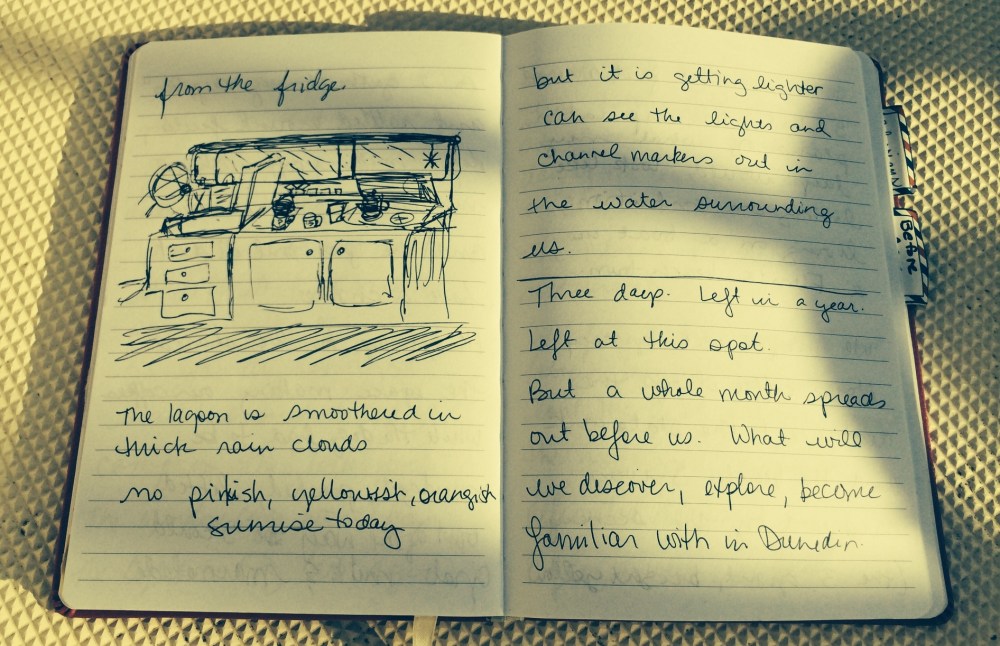 from the fridge.
The lagoon is smoothered in
thick rain clouds
no pinkish, yellowish, orangish
sunrise today
but it is getting lighter
can see the lights and
channel markers out in
the water surrounding
us.
Three days. Left in a year.
Left at this spot.
But a whole month spreads
out before us. What will
we discover, explore, become
familiar with in Dunedin.
Before